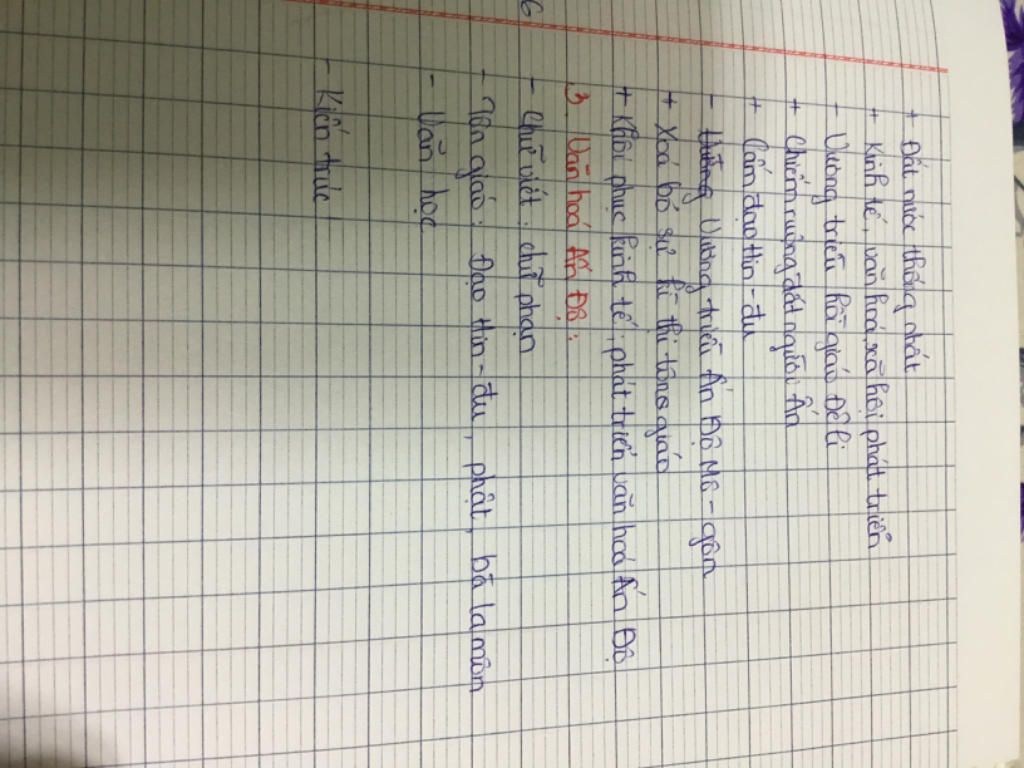 + Đất nước thống nhất
+ Kinh tế, văn hoá, xã hội phát triển
- Vương triều hồi giáo Đêli
+ Chiếm ruộng đất người Ấn
+ Cấm đạo Hin-đu
- Vương triều Ấn Độ Mô-gôn
+ Xoá bỏ sự kì thị tông giáo
+ Khôi phục kinh tế, phát triển văn hoá Ấn Độ
3. Văn hoá Ấn Độ:
- Chữ viết: chữ phạn
- Tôn giáo: Đạo Hin-đu, phật, bà la môn
- Văn học
- Kiến trúc
6